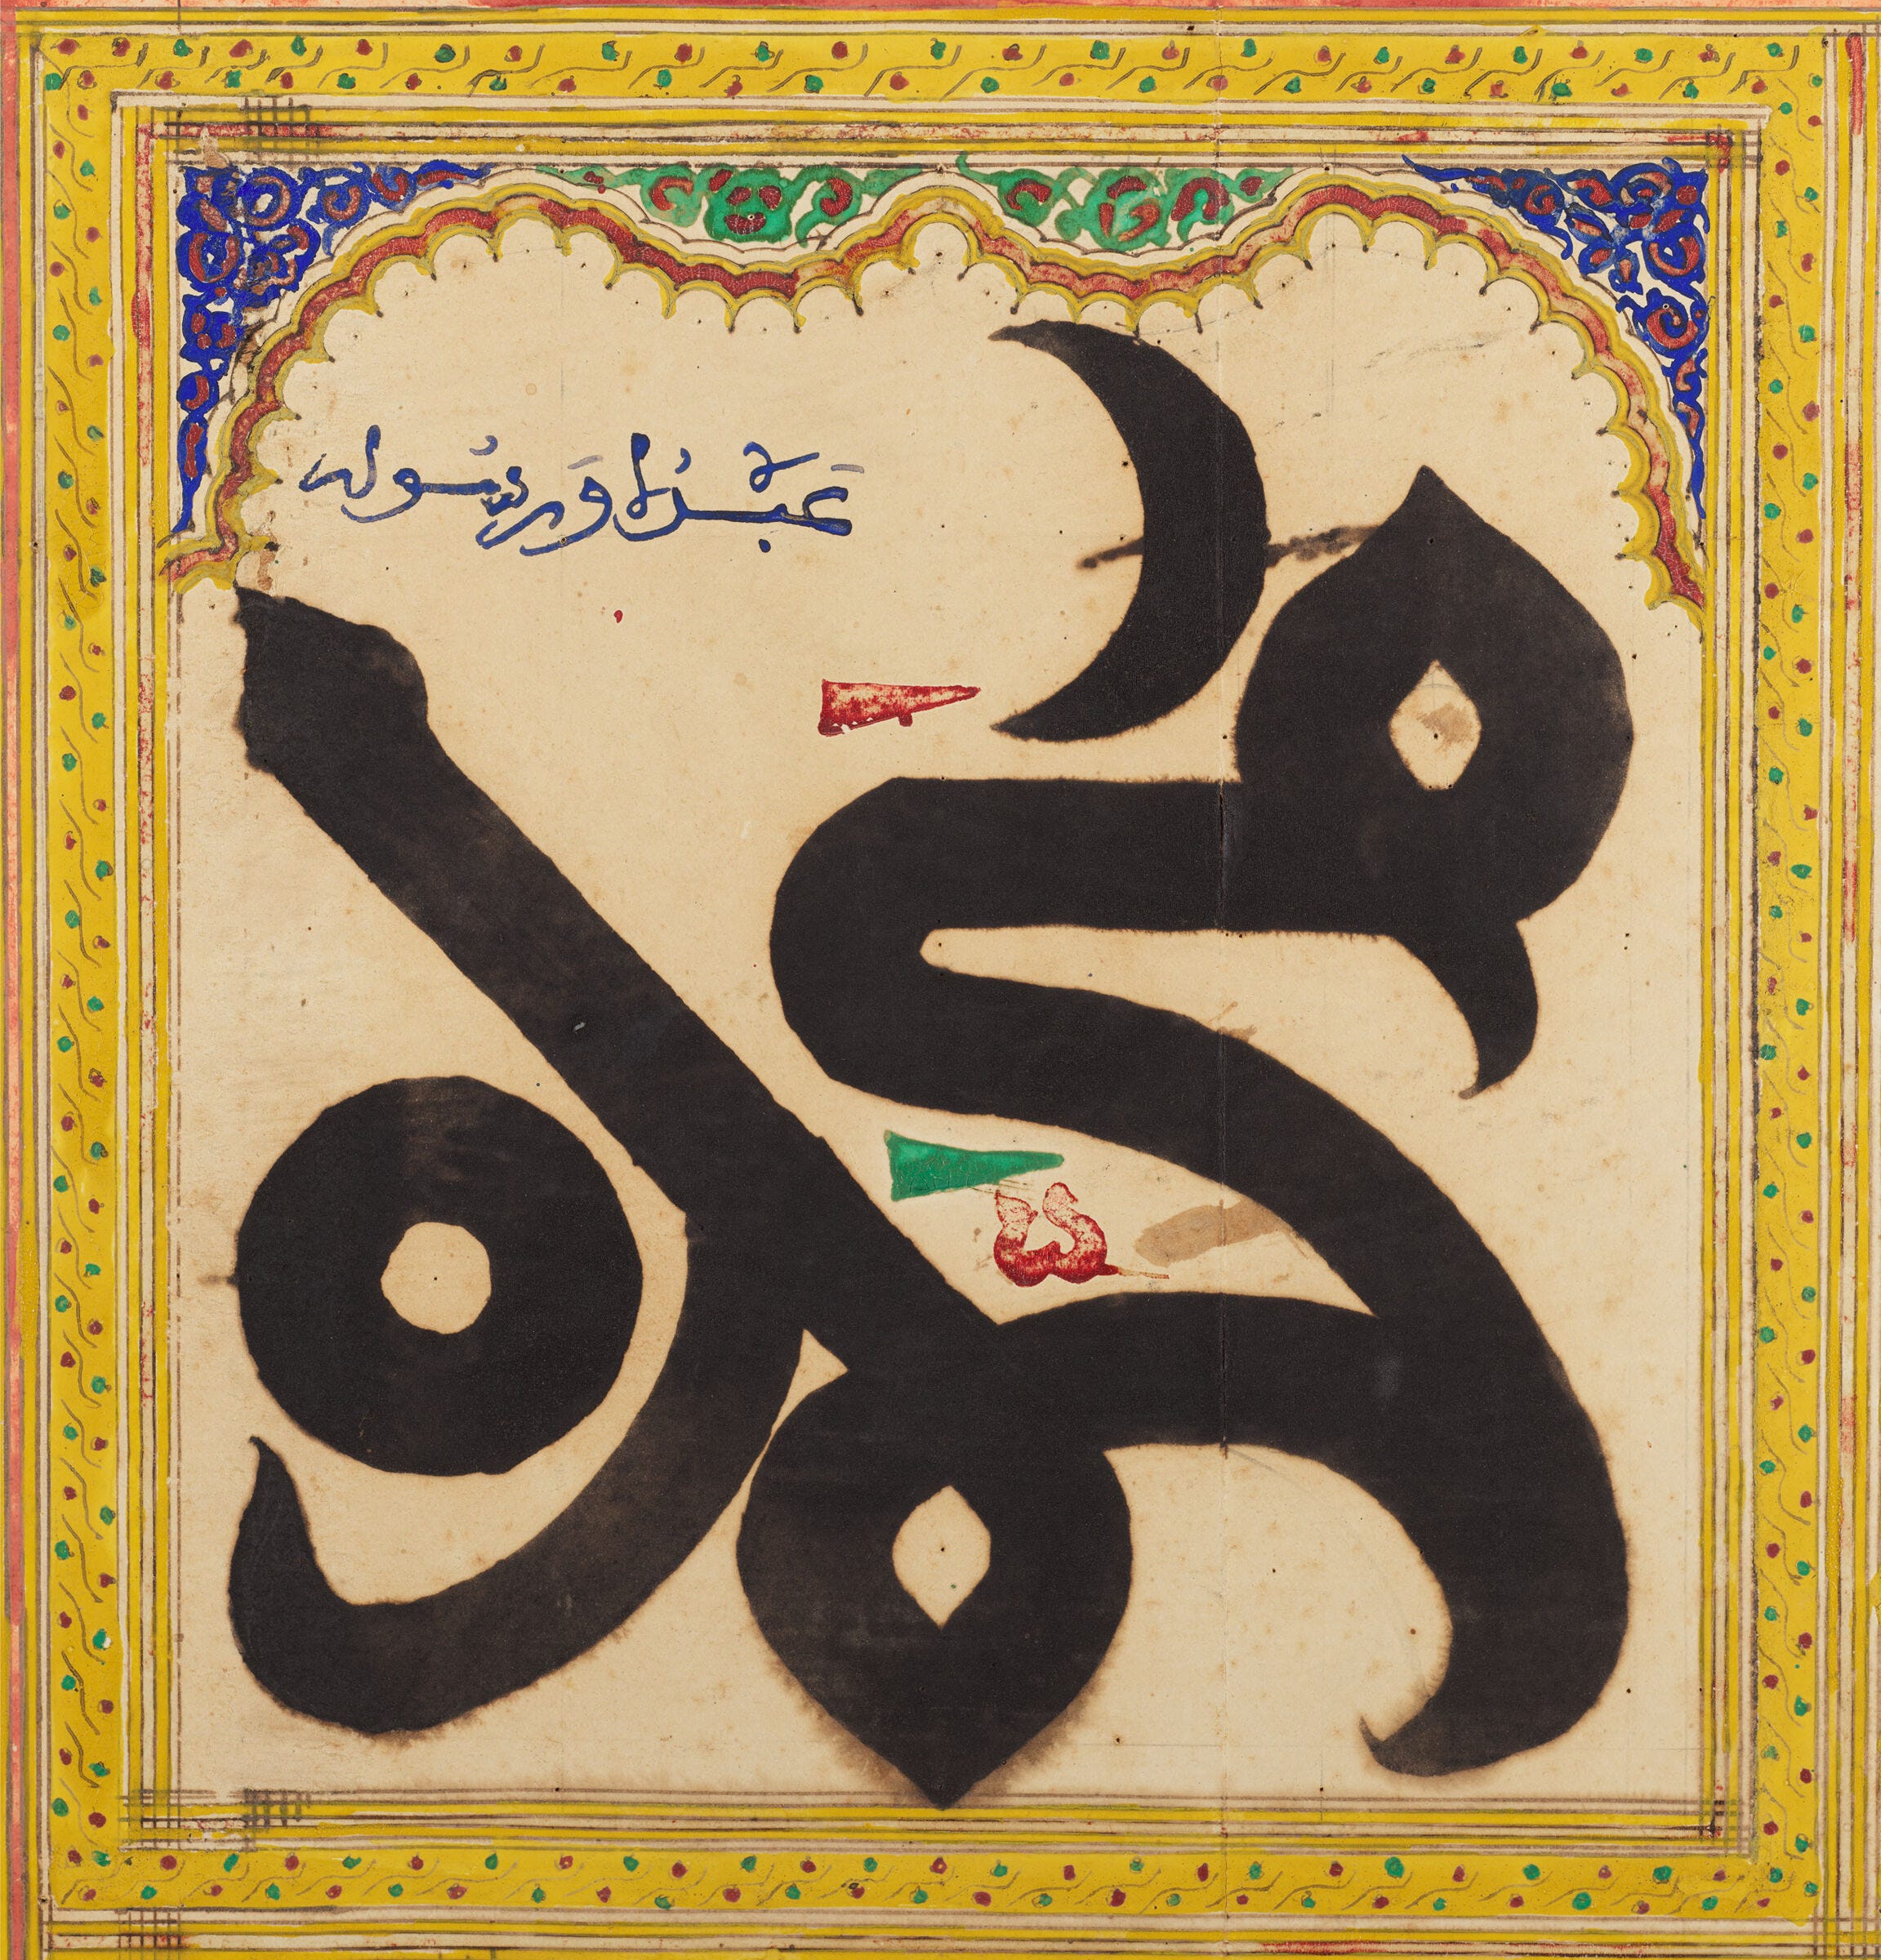 عَبْدُهُ وَرَسُولُه
مُحَمَّدٌ